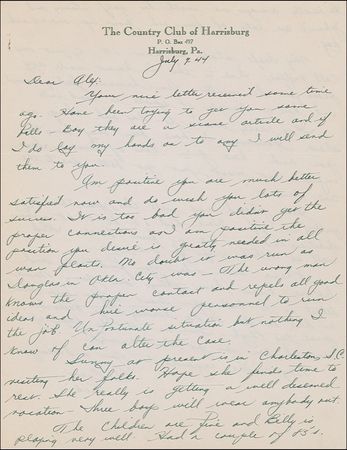 The Country Club of Harrisburg
P. O. Box 417
Harrisburg, Pa.
July 9. 44
Dear Alex:
Your nice letter received some time
ago. Have been trying to get you some
balls - Boy they are a scarce article and if
I do lay my hands on to any I will send
them to you.
Am positive you are much better
satisfied now and do wish you lots of
success. It is too bad you didn't get the
proper connections and am positive the
position you desire is greatly needed in all
war plants. No doubt it was run as
Douglas in Okla. City was - The wrong man
knows the proper contact and repels all good
ideas and hire worse personnel to run
the job. Unfortunate situation but nothing I
know of can alter the case.
at present is in Charleston, S.C.
visiting her folks. Hope she finds time to
rest. She really is getting a well deserved
vacation - three boys will wear anybody out.
The children are fine and Billy is
playing very well. Had a couple of 83s.